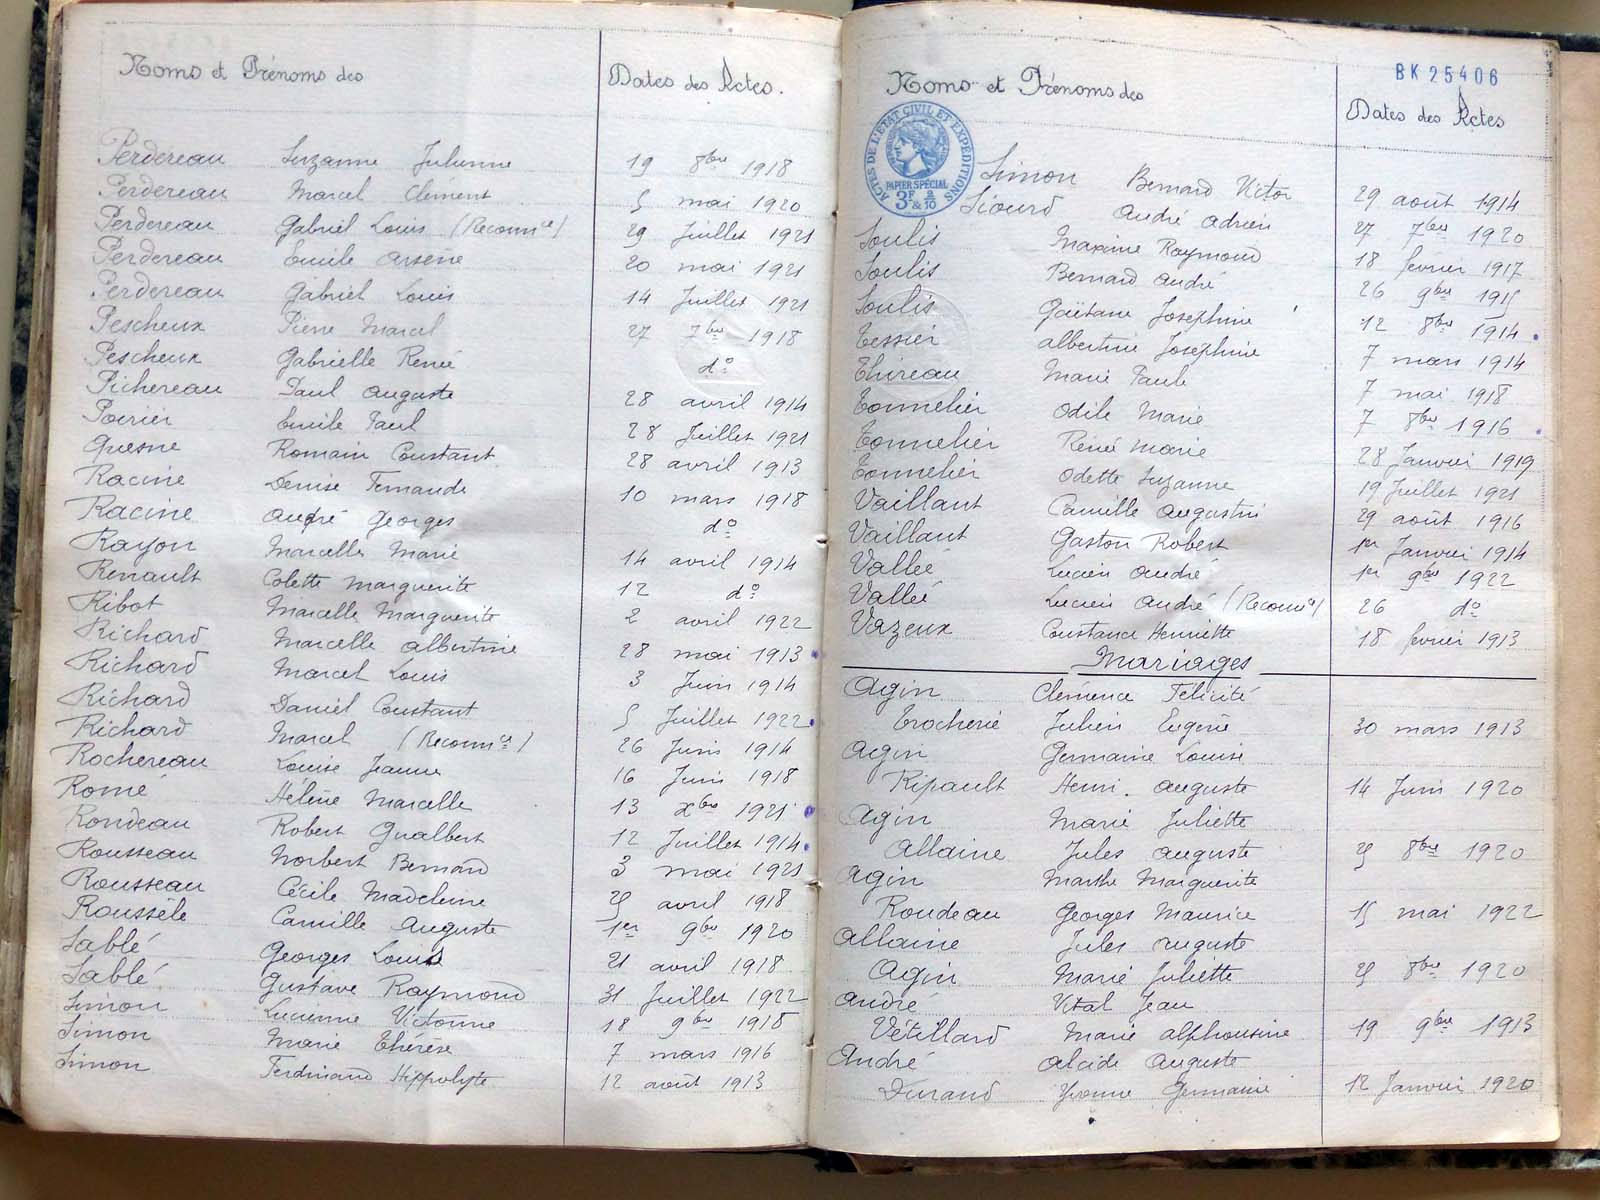 Noms et Prénoms des Dates des Actes.
Perdereau Suzanne Julienne 19 8bre 1918
Perdereau Marcel Clément 5 mai 1920
Perdereau Gabriel Louis (Reconnce) 29 Juillet 1921
Perdereau Emile Arsène 20 mai 1921
Perdereau Gabriel Louis 14 Juillet 1921
Pescheux Pierre Marcel 27 7bre 1918
Pescheux Gabrielle René do
Pichereau Paul Auguste 28 avril 1914
Poirier Emile Paul 28 Juillet 1921
Quesne Romain Constant 28 avril 1913
Racine Denise Fernande 10 mars 1918
Racine André Georges do
Rayon Marcelle Marie 14 avril 1914
Renault Colette Marguerite 12 do
Ribot Marcelle Marguerite 2 avril 1922
Richard Marcelle Albertine 28 mai 1913
Richard Marcel Louis 3 Juin 1914
Richard Daniel Constant 5 Juillet 1922
Richard Marcel (Reconnce) 26 Juin 1914
Rochereau Louise Jeanne 16 Juin 1918
Romé Hélène Marcelle 13 xbre 1921
Rondeau Robert Gualbert 12 Juillet 1914
Rousseau Norbert Bernard 3 mai 1921
Rousseau Cécile Madeleine 25 avril 1918
Roussèle Camille Auguste 1er 9bre 1920
Sablé Georges Louis 21 avril 1918
Sablé Gustave Raymond 31 Juillet 1922
Simon Lucienne Victorine 18 9bre 1915
Simon Marie Thérèse 7 mars 1916
Simon Ferdinand Hippolyte 12 août 1913
BK 25406
Noms et Prénoms des Dates des Actes
ACTES DE L'ETAT CIVIL ET EXPÉDITIONS
PAPIER SPÉCIAL
3F & 2/10
Simon Bernard Victor 29 août 1914
Sicurd André Adrien 27 7bre 1920
Soulis Maxime Raymond 18 février 1917
Soulis Bernard André 26 9bre 1915
Soulis Gaëtane Joséphine 12 8bre 1914
Tessier Albertine Joséphine 7 mars 1914
Thireau Marie Paule 7 mai 1918
Tonnelier Odile Marie 7 8bre 1916
Tonnelier René Marie 28 Janvier 1919
Tonnelier Odette Suzanne 19 Juillet 1921
Vaillant Camille Augustin 29 août 1916
Vaillant Gaston Robert 1er Janvier 1914
Vallée Lucien André 1er 9bre 1922
Vallée Lucien André (Reconnce) 26 do
Vazeux Constance Henriette 18 février 1913
Mariages
Agin Clémence Félicité
Trocherie Julien Eugène 30 mars 1913
Agin Germaine Louise
Ripault Henri Auguste 14 Juin 1920
Agin Marie Juliette
Allaine Jules Auguste 25 8bre 1920
Agin Marthe Marguerite
Rondeau Georges Maurice 15 mai 1922
Allaine Jules Auguste
Agin Marie Juliette 25 8bre 1920
André Vital Jean
Vétillard Marie Alphonsine 19 9bre 1913
André Alcide Auguste
Durand Yvonne Germaine 12 Janvier 1920